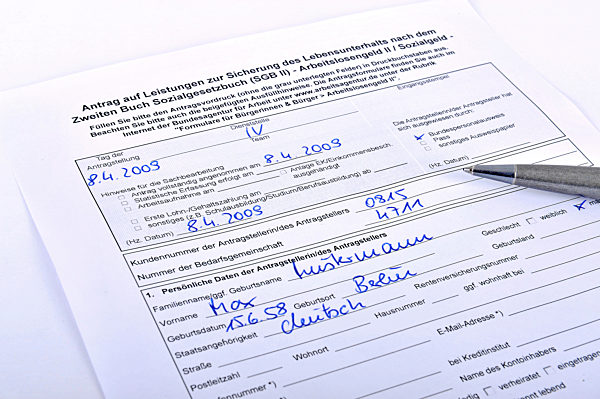 Antrag auf Leistungen zur Sicherung des Lebensunterhalts nach dem
Zweiten Buch Sozialgesetzbuch (SGB II) - Arbeitslosengeld II / Sozialgeld -
Füllen Sie bitte den Antragsvordruck (ohne die grau unterlegten Felder) in Druckbuchstaben aus.
Beachten Sie bitte auch die beigefügten Ausfüllhinweise. Die Antragsformulare finden Sie auch im
Internet der Bundesagentur für Arbeit unter www.arbeitsagentur.de unter der Rubrik
"Formulare für Bürgerinnen & Bürger > Arbeitslosengeld II".
Tag der Antragstellung
8.4.2009
Dienststelle
IV
Team
Eingangsstempel
Hinweise für die Sachbearbeitung
Antrag vollständig angenommen am 8.4.2009
Statistische Erfassung erfolgt am
Anlage EK/Einkommensbesch. ausgehändigt
Arbeitsaufnahme am
Erste Lohn-/Gehaltszahlung am
sonstiges (z.B. Schulausbildung/Studium/Berufsausbildung) ab
(Hz. Datum) 8.4.2009
Die Antragstellerin/der Antragsteller hat
sich ausgewiesen durch:
Bundespersonalausweis
Pass
sonstiges Ausweispapier
(Hz. Datum)
Kundennummer der Antragstellerin/des Antragstellers 0815
Nummer der Bedarfsgemeinschaft 4711
1. Persönliche Daten der Antragstellerin/des Antragstellers
Familienname/ggf. Geburtsname Mustermann
Geschlecht weiblich
Vorname Max
Geburtsland
Geburtsdatum 15.6.58 Geburtsort Berlin
Rentenversicherungsnummer
Staatsangehörigkeit deutsch
Hausnummer
ggf. wohnhaft bei
Straße
Wohnort
E-Mail-Adresse *)
Postleitzahl
bei Kreditinstitut
Name des Kontoinhabers
verheiratet